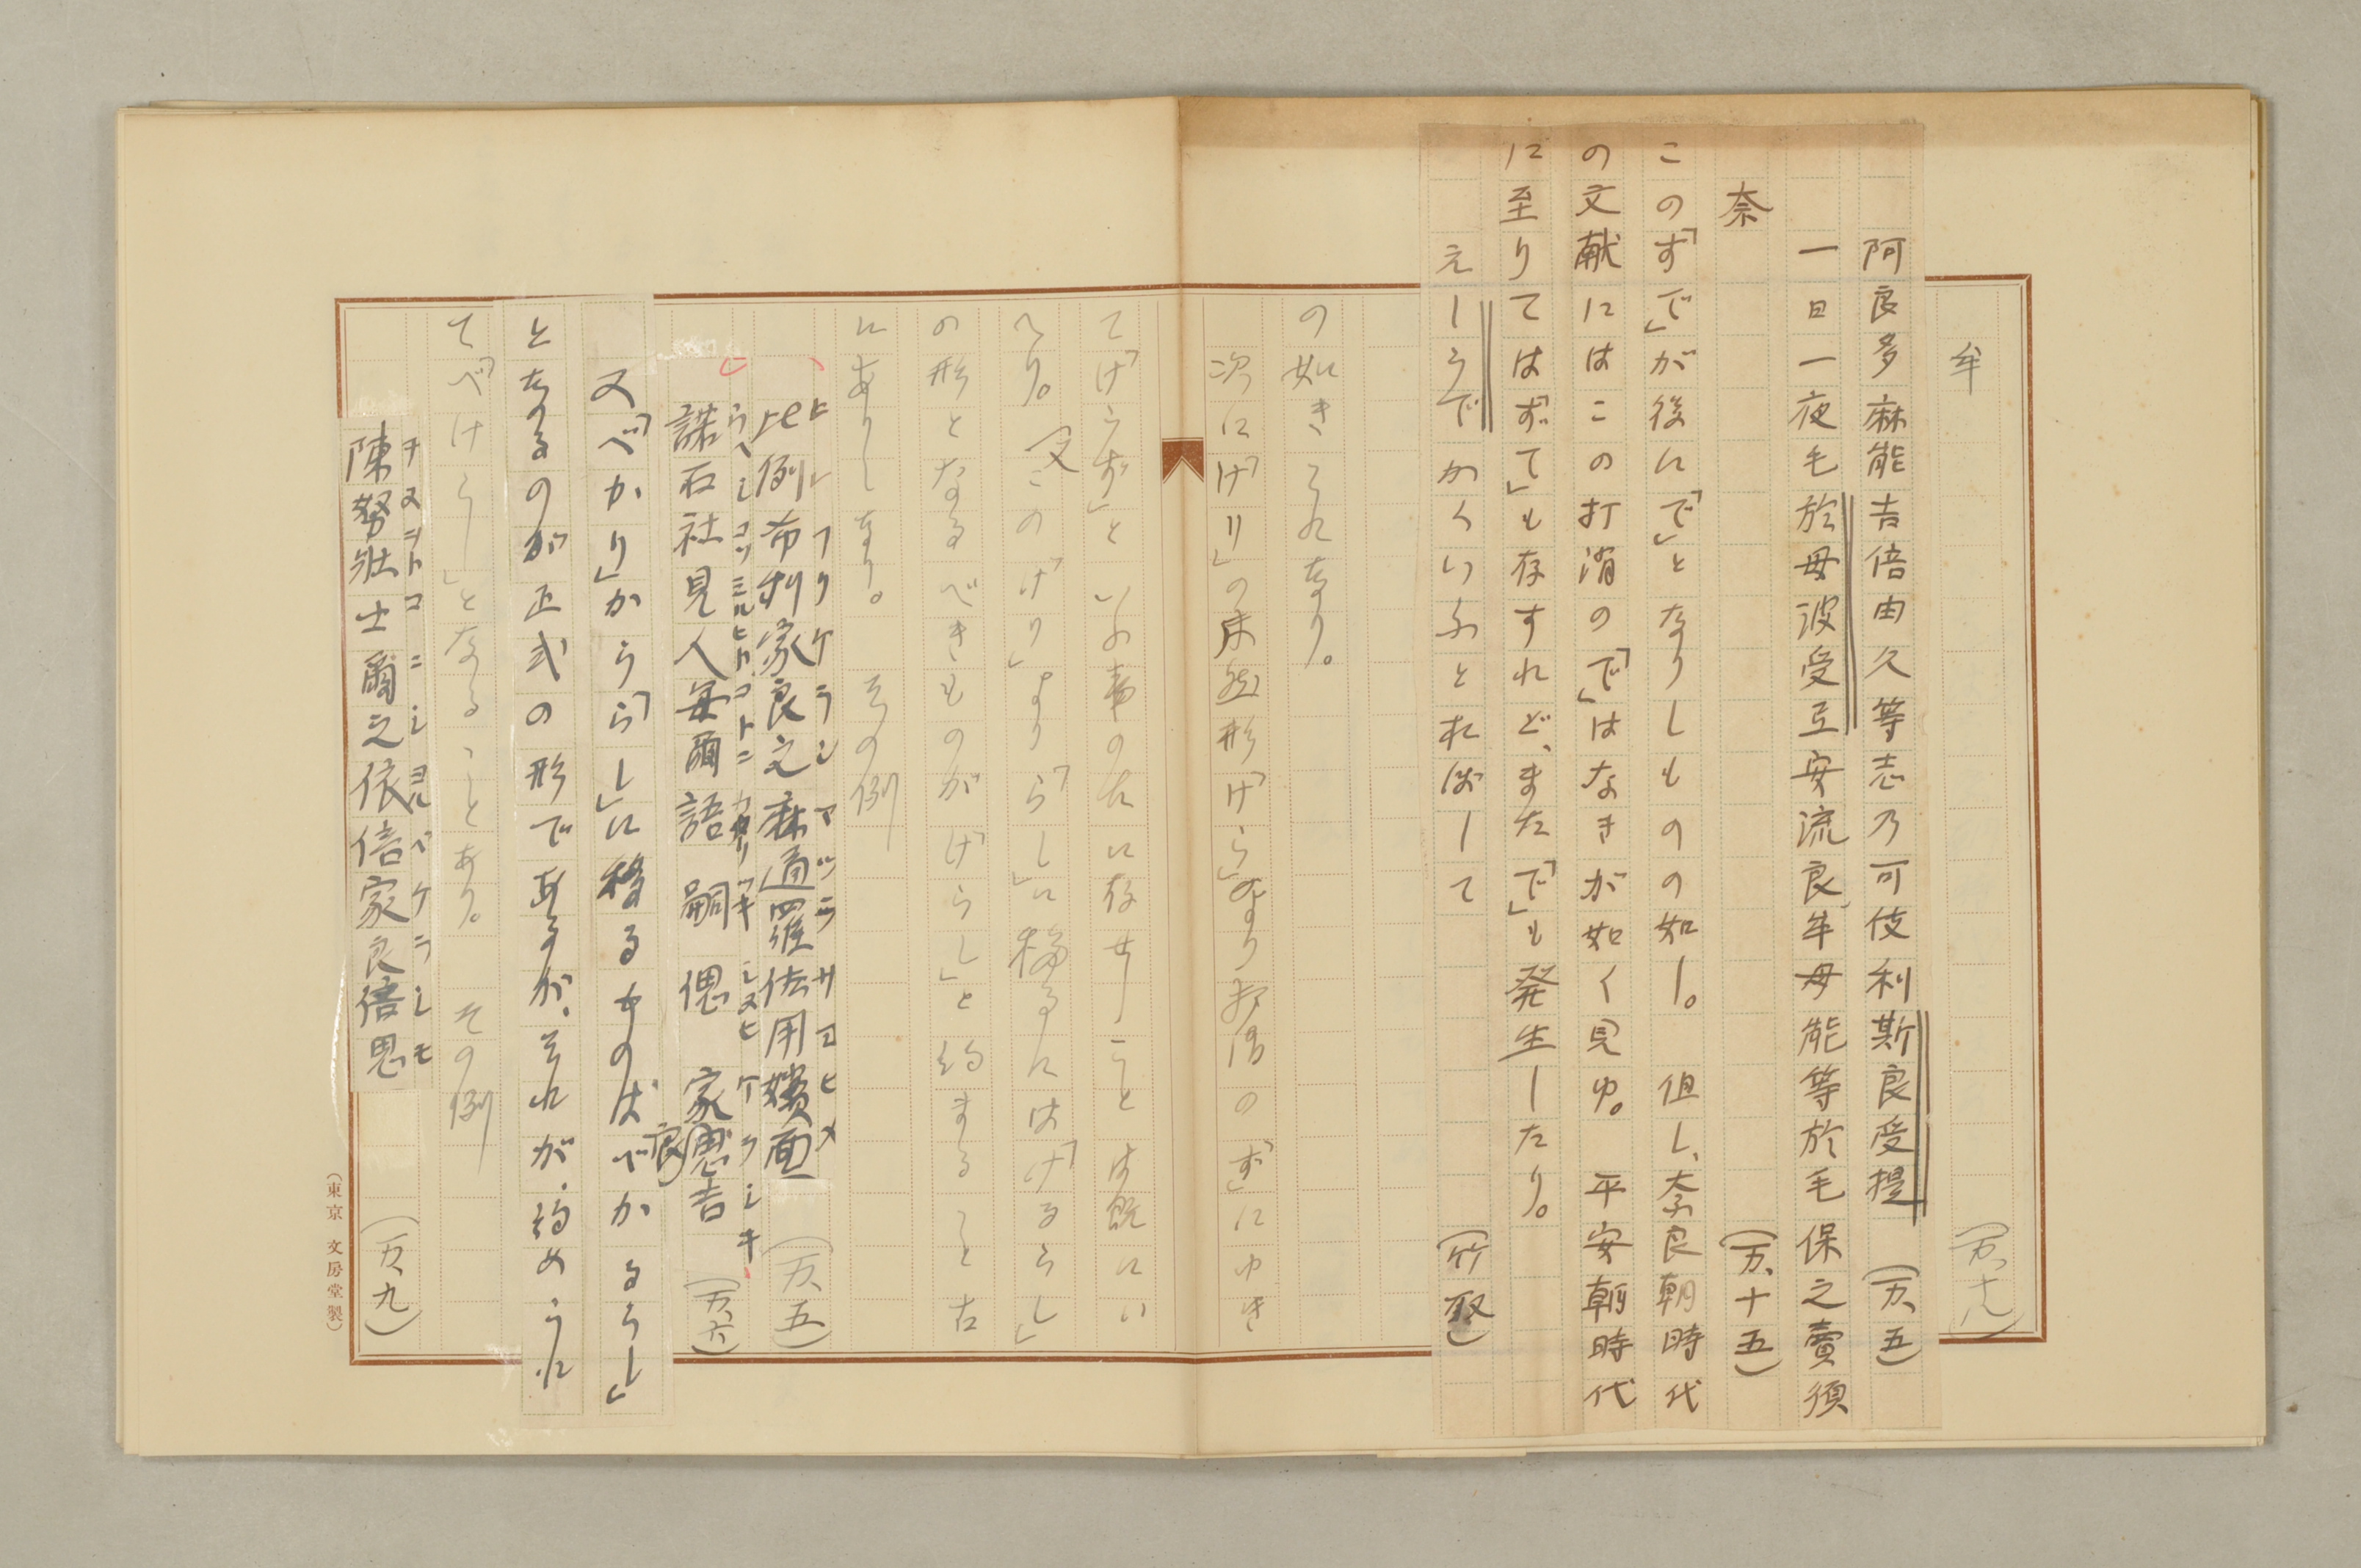 牟　（万、十八）
阿良多麻能吉倍由久等志乃可伎利斯良受提　（万、五）
一日一夜毛於母波受弖安流良牟母能等於毛保之賣須
奈　（万、十五）
この「ずで」が後に「で」となりしものの如し。但し、奈良朝時代
の文献にはこの打消の「で」はなきが如く見ゆ。平安朝時代
に至りては「ずて」も存すれど、また「で」も発生したり。
えしらでかくいふとればして　（竹取）
の如きこれなり。
次に「けり」の未然形「けら」なり打消の「ず」にゆき
て「けらず」といふ事の古に存せしことは既にい
へり。又この「けり」より「らし」に移るには「けるらし」
の形となるべきものが「けらし」と約まること古
にありしなり。その例
比例布利家良之麻通羅佐用嬪面　（万、五）
ヒレフリケラシマツラサヨヒメ
諾石社見人毎爾語嗣偲家良思吉　（万、六）
ウベシコソミルヒトゴトニカタリツギシヌヒケラシキ
又「べかり」から「らし」に移るものは「べかるらし」
となるのが正式の形であるが、それが、約めうれ
て「べけらし」となることあり。その例
陳努壮士爾之依倍家良信思　（万、九）
チヌヲトコニシヨルベケラシモ
（東京 文房堂製）